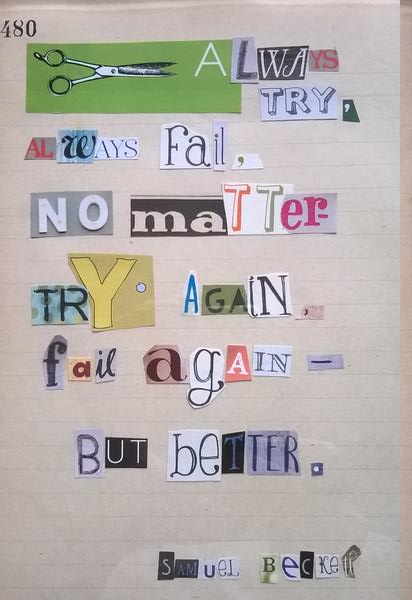 480
ALWAYS
TRY,
ALWAYS Fail,
NO maTTer-
TRY. AGAiN,
fail agAIN —
BUT beTTER.
SAMUEL BECKETT